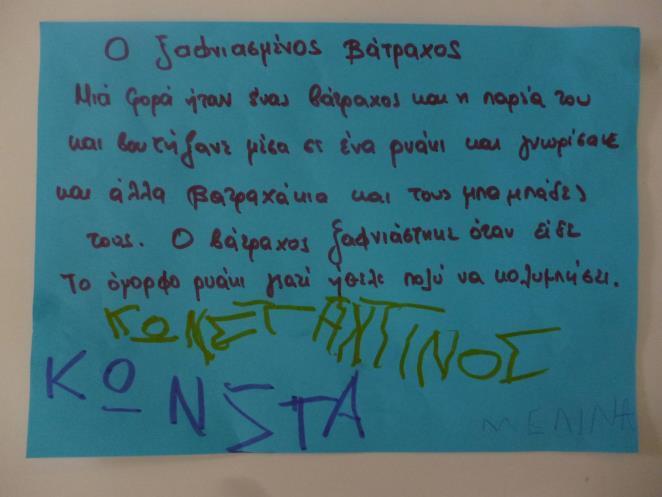 Ο ξαφνιασμένος βάτραχος
Μιά φορά ήταν ένας βάτραχος και η παρέα του
και βουτήξανε μέσα σε ένα ρυάκι και γνωρίσανε
και άλλα βατραχάκια και τους μπαμπάδες
τους. Ο βάτραχος ξαφνιάστηκε όταν είδε
το όμορφο ρυάκι γιατί ήθελε πολύ να κολυμπήσει.
ΚΩΝΣΤΑΝΤΙΝΟΣ
ΚΩΝΣΤΑ
ΜΕΛΙΝΑ